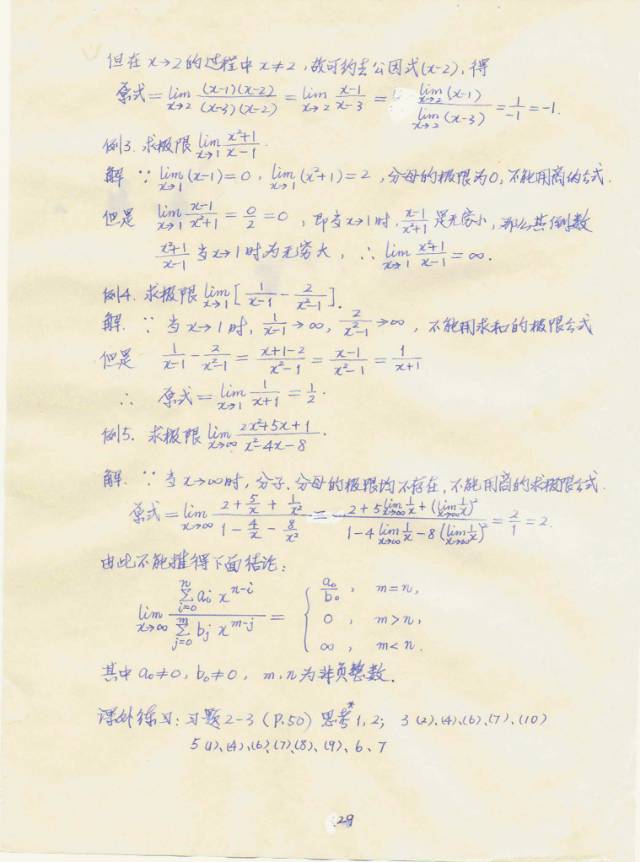 但在 x→2 的过程中 x≠2，故可约去公因式(x-2)，得
原式 = lim_{x→2} (x-1)(x-2)/(x-3)(x-2) = lim_{x→2} (x-1)/(x-3) = lim_{x→2}(x-1)/lim_{x→2}(x-3) = 1/-1 = -1.
例3. 求极限 lim_{x→1} (x²+1)/(x-1).
解 ∵ lim_{x→1}(x-1)=0，lim_{x→1}(x²+1)=2，分母的极限为0，不能用商的公式.
但是 lim_{x→1} (x-1)/(x²+1) = 0/2 = 0，即当x→1时，(x-1)/(x²+1) 是无穷小，那么其倒数
(x²+1)/(x-1) 当x→1时为无穷大，∴ lim_{x→1} (x²+1)/(x-1) = ∞.
例4. 求极限 lim_{x→1} [1/(x-1) - 2/(x²-1)].
解. ∵ 当 x→1时，1/(x-1)→∞，2/(x²-1)→∞，不能用求和的极限公式
但是 1/(x-1) - 2/(x²-1) = (x+1-2)/(x²-1) = (x-1)/(x²-1) = 1/(x+1)
∴ 原式 = lim_{x→1} 1/(x+1) = 1/2.
例5. 求极限 lim_{x→∞} (2x²+5x+1)/(x²-4x-8).
解. ∵ 当x→∞时，分子.分母的极限均不存在，不能用商的求极限公式.
原式 = lim_{x→∞} (2+5/x+1/x²)/(1-4/x-8/x²) = (2+5lim_{x→∞}1/x+(lim_{x→∞}1/x)²)/(1-4lim_{x→∞}1/x-8(lim_{x→∞}1/x)²) = 2/1 = 2.
由此不能推得下面结论：
lim_{x→∞} (∑_{i=0}^{n} a_i x^{n-i})/(∑_{j=0}^{m} b_j x^{m-j}) = { a₀/b₀， m=n，
0， m>n，
∞， m<n.
其中 a₀≠0，b₀≠0，m，n为非负整数.
课外练习：习题2-3（P.50）思考*1，2；3(2)、(4)、(6)、(7)、(10)
5(1)、(4)、(6)、(7)、(8)、(9)、6、7
29